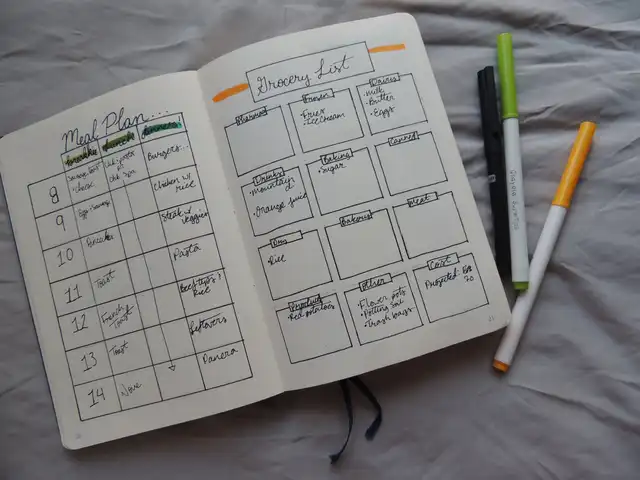 Meal Plan...
breakfast lunch dinner
8
cheese
Burgers..
9
Egg
Chicken w/
rice
10
Steak w/
veggies
11
Toast
Pasta
12
French
Toast
Beef tips &
Rice
13
Toast
Leftovers
14
None
Panera
Grocery List
Frozen
• Fries
• Ice cream
Dairy
• Milk
• Butter
• Eggs
Drinks
• Mountain
D
• Orange juice
Baking
• Sugar
Canned
Dry
Rice
Bakery
Meat
Produce
• Red potatoes
Other
• Flower pots
• Potting soil
• Trash bags
Cost
Projected:
70